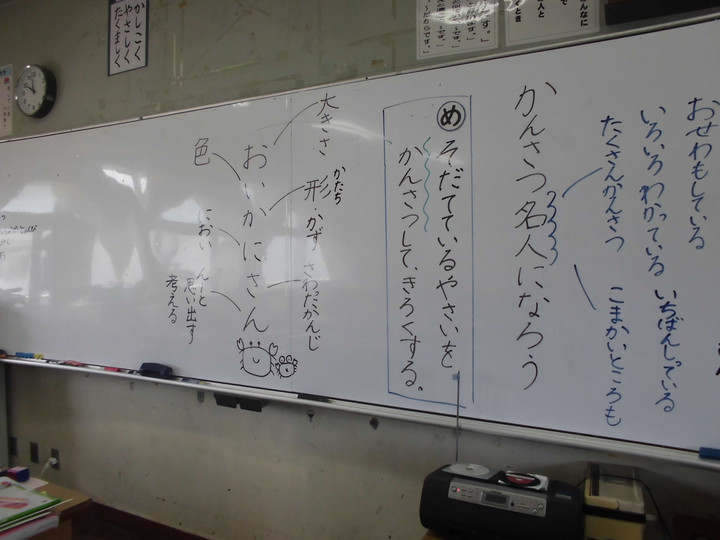 おせわもしている
いろいろわかっている いちばんしっている
たくさんかんさつ こまかいところも
かんさつ名人になろう
め
そだてているやさいを
かんさつして、きろくする。
大きさ
かたち
形 かず さわったかんじ
おいかにさん
色
におい
んーと
思い出す
考える
かしこく
やさしく
たくましく